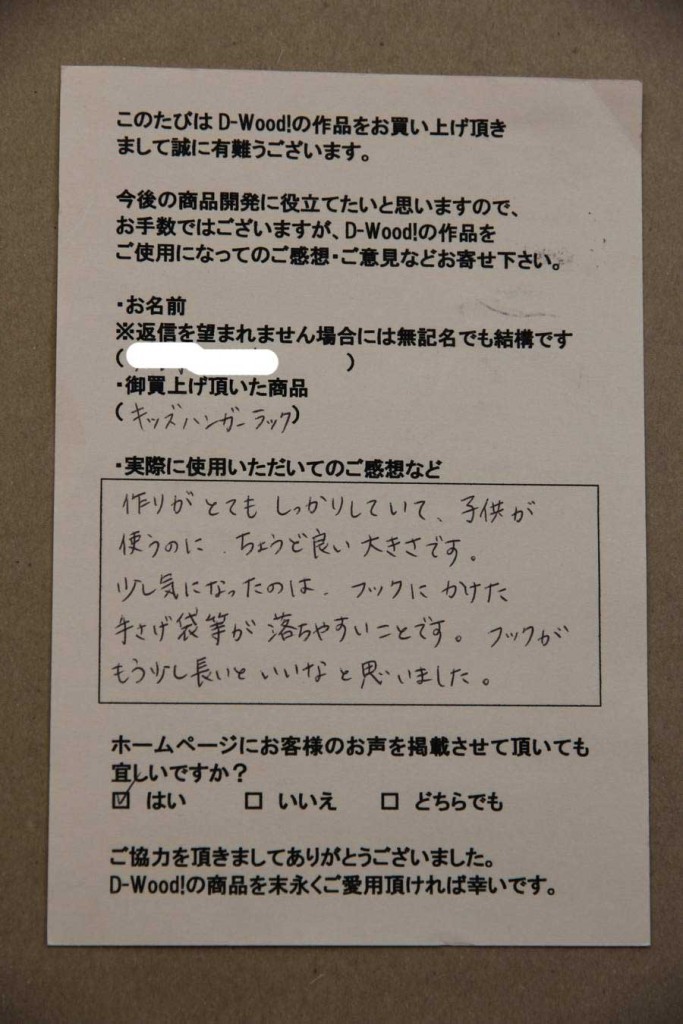 このたびは D-Wood!の作品をお買い上げ頂き
まして誠に有難うございます。
今後の商品開発に役立てたいと思いますので、
お手数ではございますが、D-Wood!の作品を
ご使用になってのご感想・ご意見などお寄せ下さい。
・お名前
※返信を望まれません場合には無記名でも結構です
( )
・御買上げ頂いた商品
(キッズハンガーラック)
・実際に使用いただいてのご感想など
作りがとてもしっかりしていて、子供が
使うのに、ちょうど良い大きさです。
少し気になったのは、フックにかけた
手さげ袋等が落ちやすいことです。フックが
もう少し長いといいなと思いました。
ホームページにお客様のお声を掲載させて頂いても
宜しいですか?
☑ はい □ いいえ □ どちらでも
ご協力を頂きましてありがとうございました。
D-Wood!の商品を末永くご愛用頂ければ幸いです。